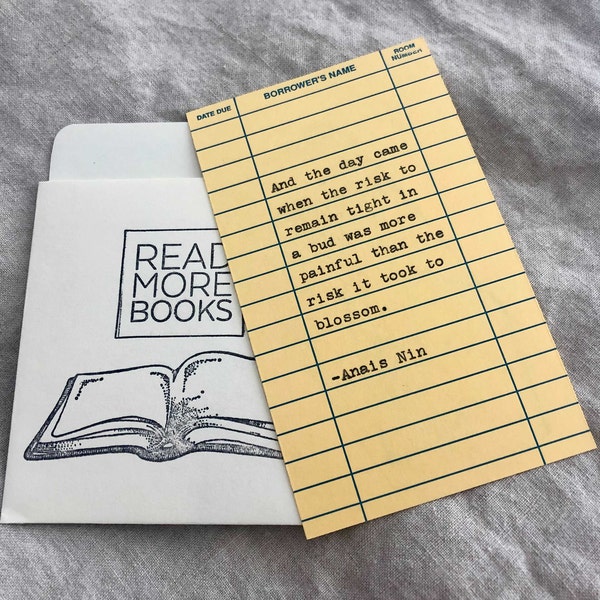 READ
MORE
BOOKS
DATE DUE
BORROWER'S NAME
ROOM
NUMBER
And the day came
when the risk to
remain tight in
a bud was more
painful than the
risk it took to
blossom.
-Anais Nin